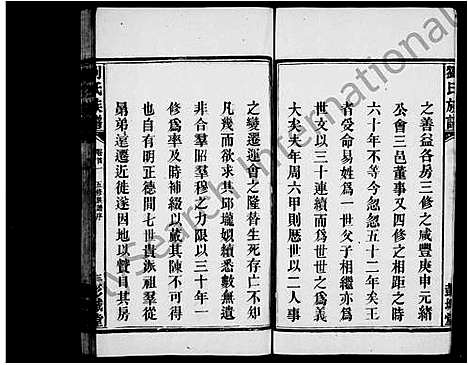 劉氏族譜
之善益各房三修之咸豐庚申元緒
公會三邑董事又四修之相距之時
六十年不等今忽忽五十二年矣王
者受命易姓爲一世父子相繼亦爲
世文以三十連續而成世之爲義
大矣夫年周六甲則歷世以二人事
之變遷運會之隆替生死存亡不知
凡幾而欲求其邱壠姻續悉數無遺
非合羣昭羣穆之力限以三十年一
修爲率及時補綴以蕆其陳不可得
也自有明正德間七世貴派祖羣從
昴弟連遷近徙遂因地以賛目其房
氏族譜
卷首
五修族譜序
彭城堂
Search International